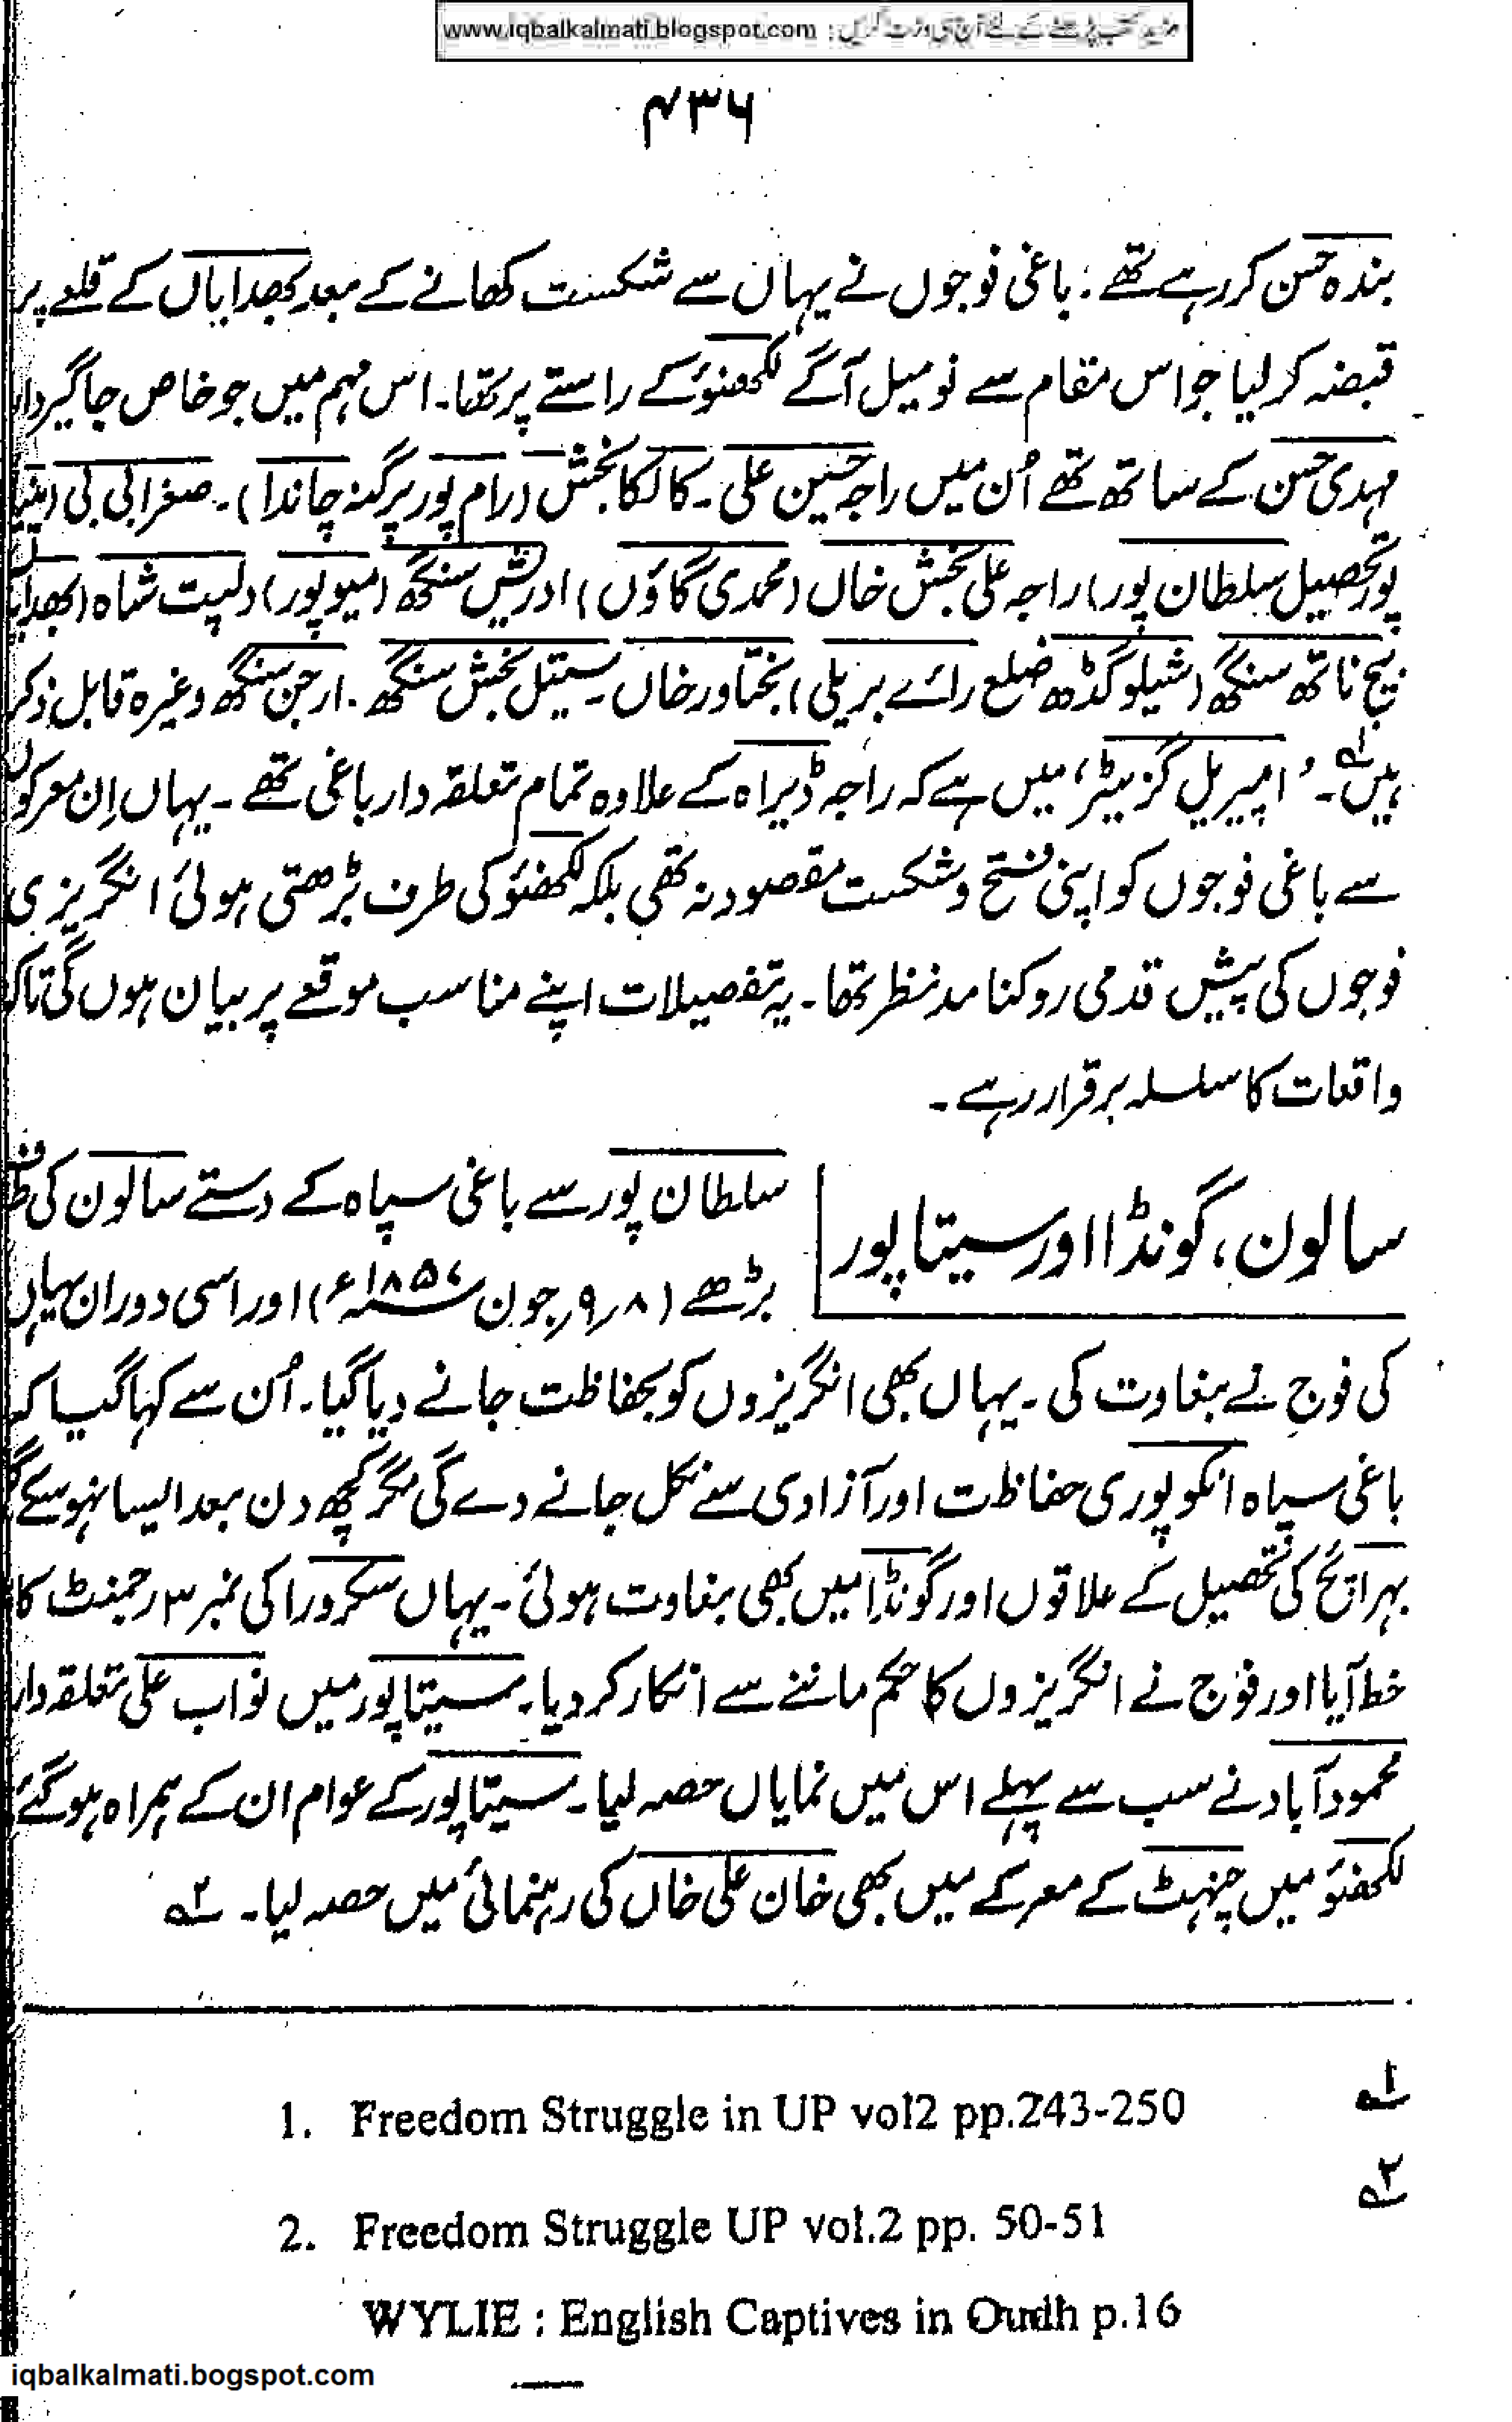 www.iqbalkalmati.blogspot.com : مزید کتب پڑھنے کے لئے آج ہی وزٹ کریں
۴۳۶
بندہ حسن کر رہے تھے : باغی فوجوں نے یہاں سے شکست کھانے کے بعد بھدایاں کے قلعے پر
قبضہ کر لیا جو اس مقام سے نو میل آگے لکھنؤ کے راستے پر تھا۔ اس مہم میں جو خاص جاگیردار
مہدی حسن کے ساتھ تھے اُن میں راجہ حسین علی۔ کالکا بخش (رام پور پرگنہ چاندا)۔ صغرا بی بی
پور تحصیل سلطان پور) راجہ علی بخش خاں (محمدی گاؤں) ادریش سنگھ (میوپور) دلپت شاہ
بیج ناتھ سنگھ (شیلوگڈھ ضلع رائے بریلی) بختاور خاں۔ سیتل بخش سنگھ۔ ارجن سنگھ وغیرہ قابل ذکر
ہیں۔ ۱؎ 'امپیریل گزیٹر' میں ہے کہ راجہ ڈیراہ کے علاوہ تمام تعلقہ دار باغی تھے۔ یہاں اِن معرکوں
سے باغی فوجوں کو اپنی فتح و شکست مقصود نہ تھی بلکہ لکھنؤ کی طرف بڑھتی ہوئی انگریزی
فوجوں کی پیش قدمی روکنا مد نظر تھا۔ یہ تفصیلات اپنے مناسب موقعے پر بیان ہوں گی تاکہ
واقعات کا سلسلہ برقرار رہے۔
سالون، گونڈا اور سیتاپور
سلطان پور سے باغی سپاہ کے دستے سالون کی
بڑھے (۸؍۹؍جون ۱۸۵۷ء) اور اسی دوران یہاں
کی فوج نے بغاوت کی۔ یہاں بھی انگریزوں کو بحفاظت جانے دیا گیا۔ اُن سے کہا گیا کہ
باغی سپاہ انکو پوری حفاظت اور آزادی سے نکل جانے دے گی مگر کچھ دن بعد ایسا نہو سکے گا
بہرائچ کی تحصیل کے علاقوں اور گونڈا میں بھی بغاوت ہوئی۔ یہاں سکرورا کی نمبر ۳ رجمنٹ کا
خط آیا اور فوج نے انگریزوں کا حکم ماننے سے انکار کر دیا۔ سیتاپور میں نواب علی تعلقہ دار
محمود آباد نے سب سے پہلے اس میں نمایاں حصہ لیا۔ سیتاپور کے عوام ان کے ہمراہ ہو گئے
لکھنؤ میں چنہٹ کے معرکے میں بھی خان علی خاں کی رہنمائی میں حصہ لیا۔ ۲؎
۱؎ 1. Freedom Struggle in UP vol2 pp.243-250
۲؎ 2. Freedom Struggle UP vol.2 pp. 50-51
WYLIE : English Captives in Oudh p.16
iqbalkalmati.bogspot.com